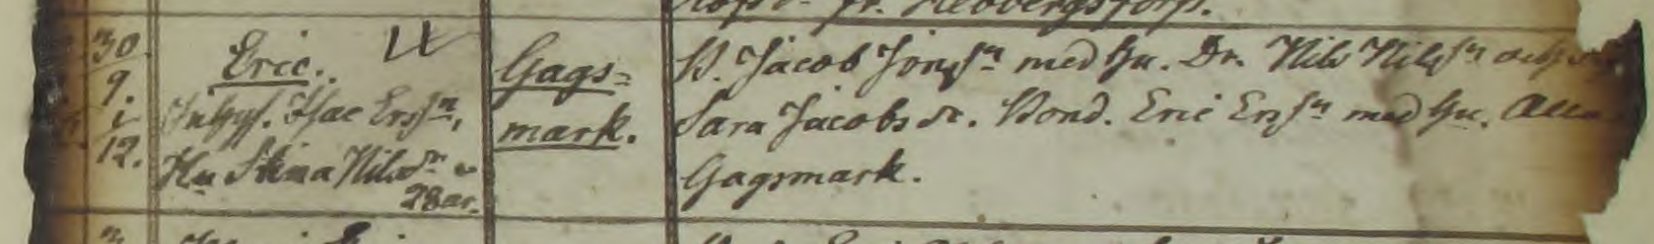 fr. Hedbergstorp.
30
9.
i
12.
Eric.
Inhys. Isac Erssn,
Hu Stina Nilsdr
28 ar.
Gags=
mark.
B. Jacob Jonssn med Hu. Dr. Nils Nilssn och
Sara Jacobs dr. Bond. Eric Erssn med Hu. Alla
Gagsmark.